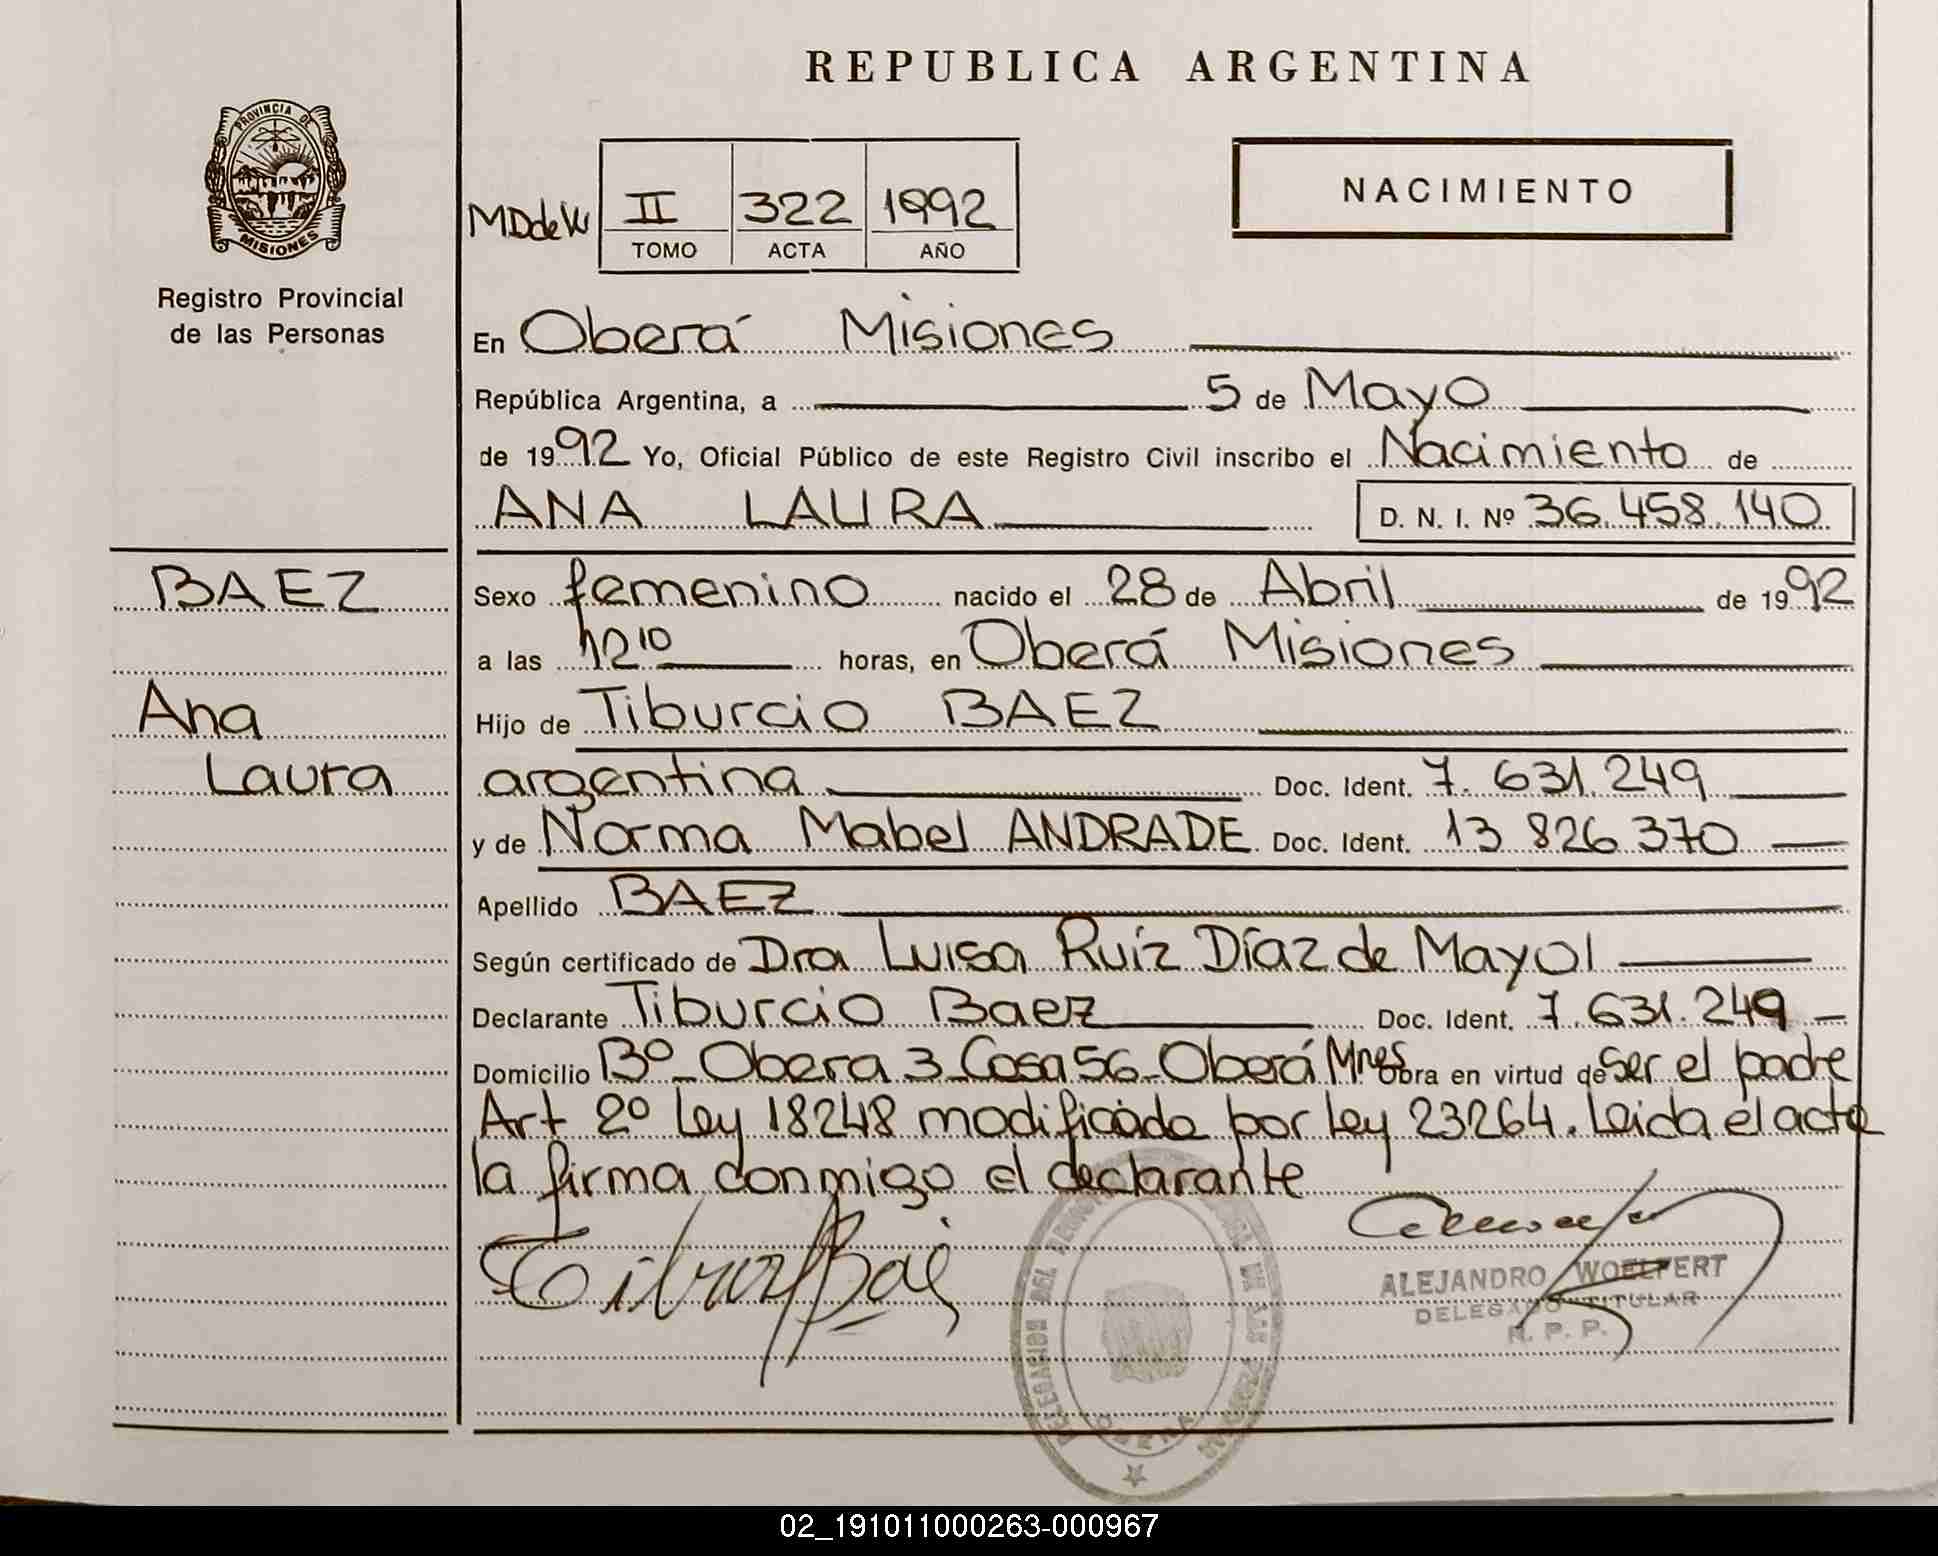 REPUBLICA ARGENTINA
PROVINCIA DE MISIONES
Registro Provincial
de las Personas
MDdeW
II 322 1992
TOMO ACTA AÑO
NACIMIENTO
En Oberá Misiones
República Argentina, a 5 de Mayo
de 1992 Yo, Oficial Público de este Registro Civil inscribo el Nacimiento de
ANA LAURA D. N. I. Nº 36.458.140
BAEZ
Ana
Laura
Sexo femenino nacido el 28 de Abril de 1992
a las 12 10 horas, en Oberá Misiones
Hijo de Tiburcio BAEZ
argentina Doc. Ident. 7.631.249
y de Norma Mabel ANDRADE Doc. Ident. 13 826 370
Apellido BAEZ
Según certificado de Dra Luisa Ruíz Díaz de Mayol
Declarante Tiburcio Baez Doc. Ident. 7.631.249
Domicilio Bº Obera 3 Casa 56 - Oberá Mnes obra en virtud de ser el padre
Art 2º Ley 18248 modificada por Ley 23264. Leida el acta
la firma conmigo el declarante
ALEJANDRO WOELFERT
DELEGADO TITULAR
R. P. P.
DELEGACION DEL REGISTRO DE LAS PERSONAS
OBERA
02_191011000263-000967